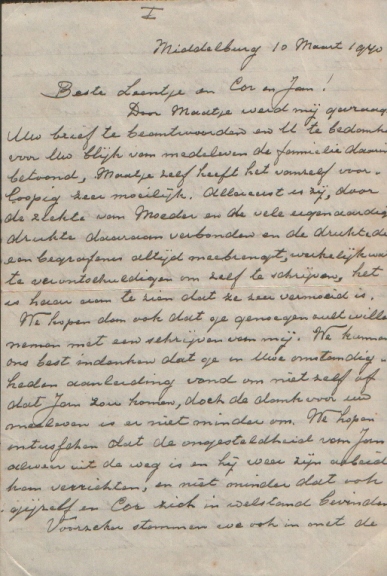 I
Middelburg 10 Maart 1940
Beste Leentje en Cor en Jan!
Door Maatje werd mij gevraagd
Uw brief te beantwoorden en U te bedanken
voor Uw blijk van medeleven de familie daarin
betoond, Maatje zelf heeft het vanzelf voor-
loopig zeer moeilijk. Allereerst is zij, door
de ziekte van Moeder en de vele eigenaardige
drukte daaraan verbonden en de drukte, die
een begrafenis altijd meebrengt, werkelijk wat
te verontschuldigen om zelf te schrijven, het
is haar aan te zien dat ze zeer vermoeid is.
We hopen dan ook dat ge genoegen zult willen
nemen met een schrijven van mij. We kunnen
ons best indenken dat ge in Uwe omstandig-
heden aanleiding vond om niet zelf of
dat Jan zou komen, doch de dank voor uw
meeleven is er niet minder om. We hopen
dat de ongesteldheid van Jan
alweer uit de weg is en hij weer zijn arbeid
kan verrichten, en niet minder dat ook
gijzelf en Cor zich in welstand bevinden
Voorzeker stemmen we ook in met de